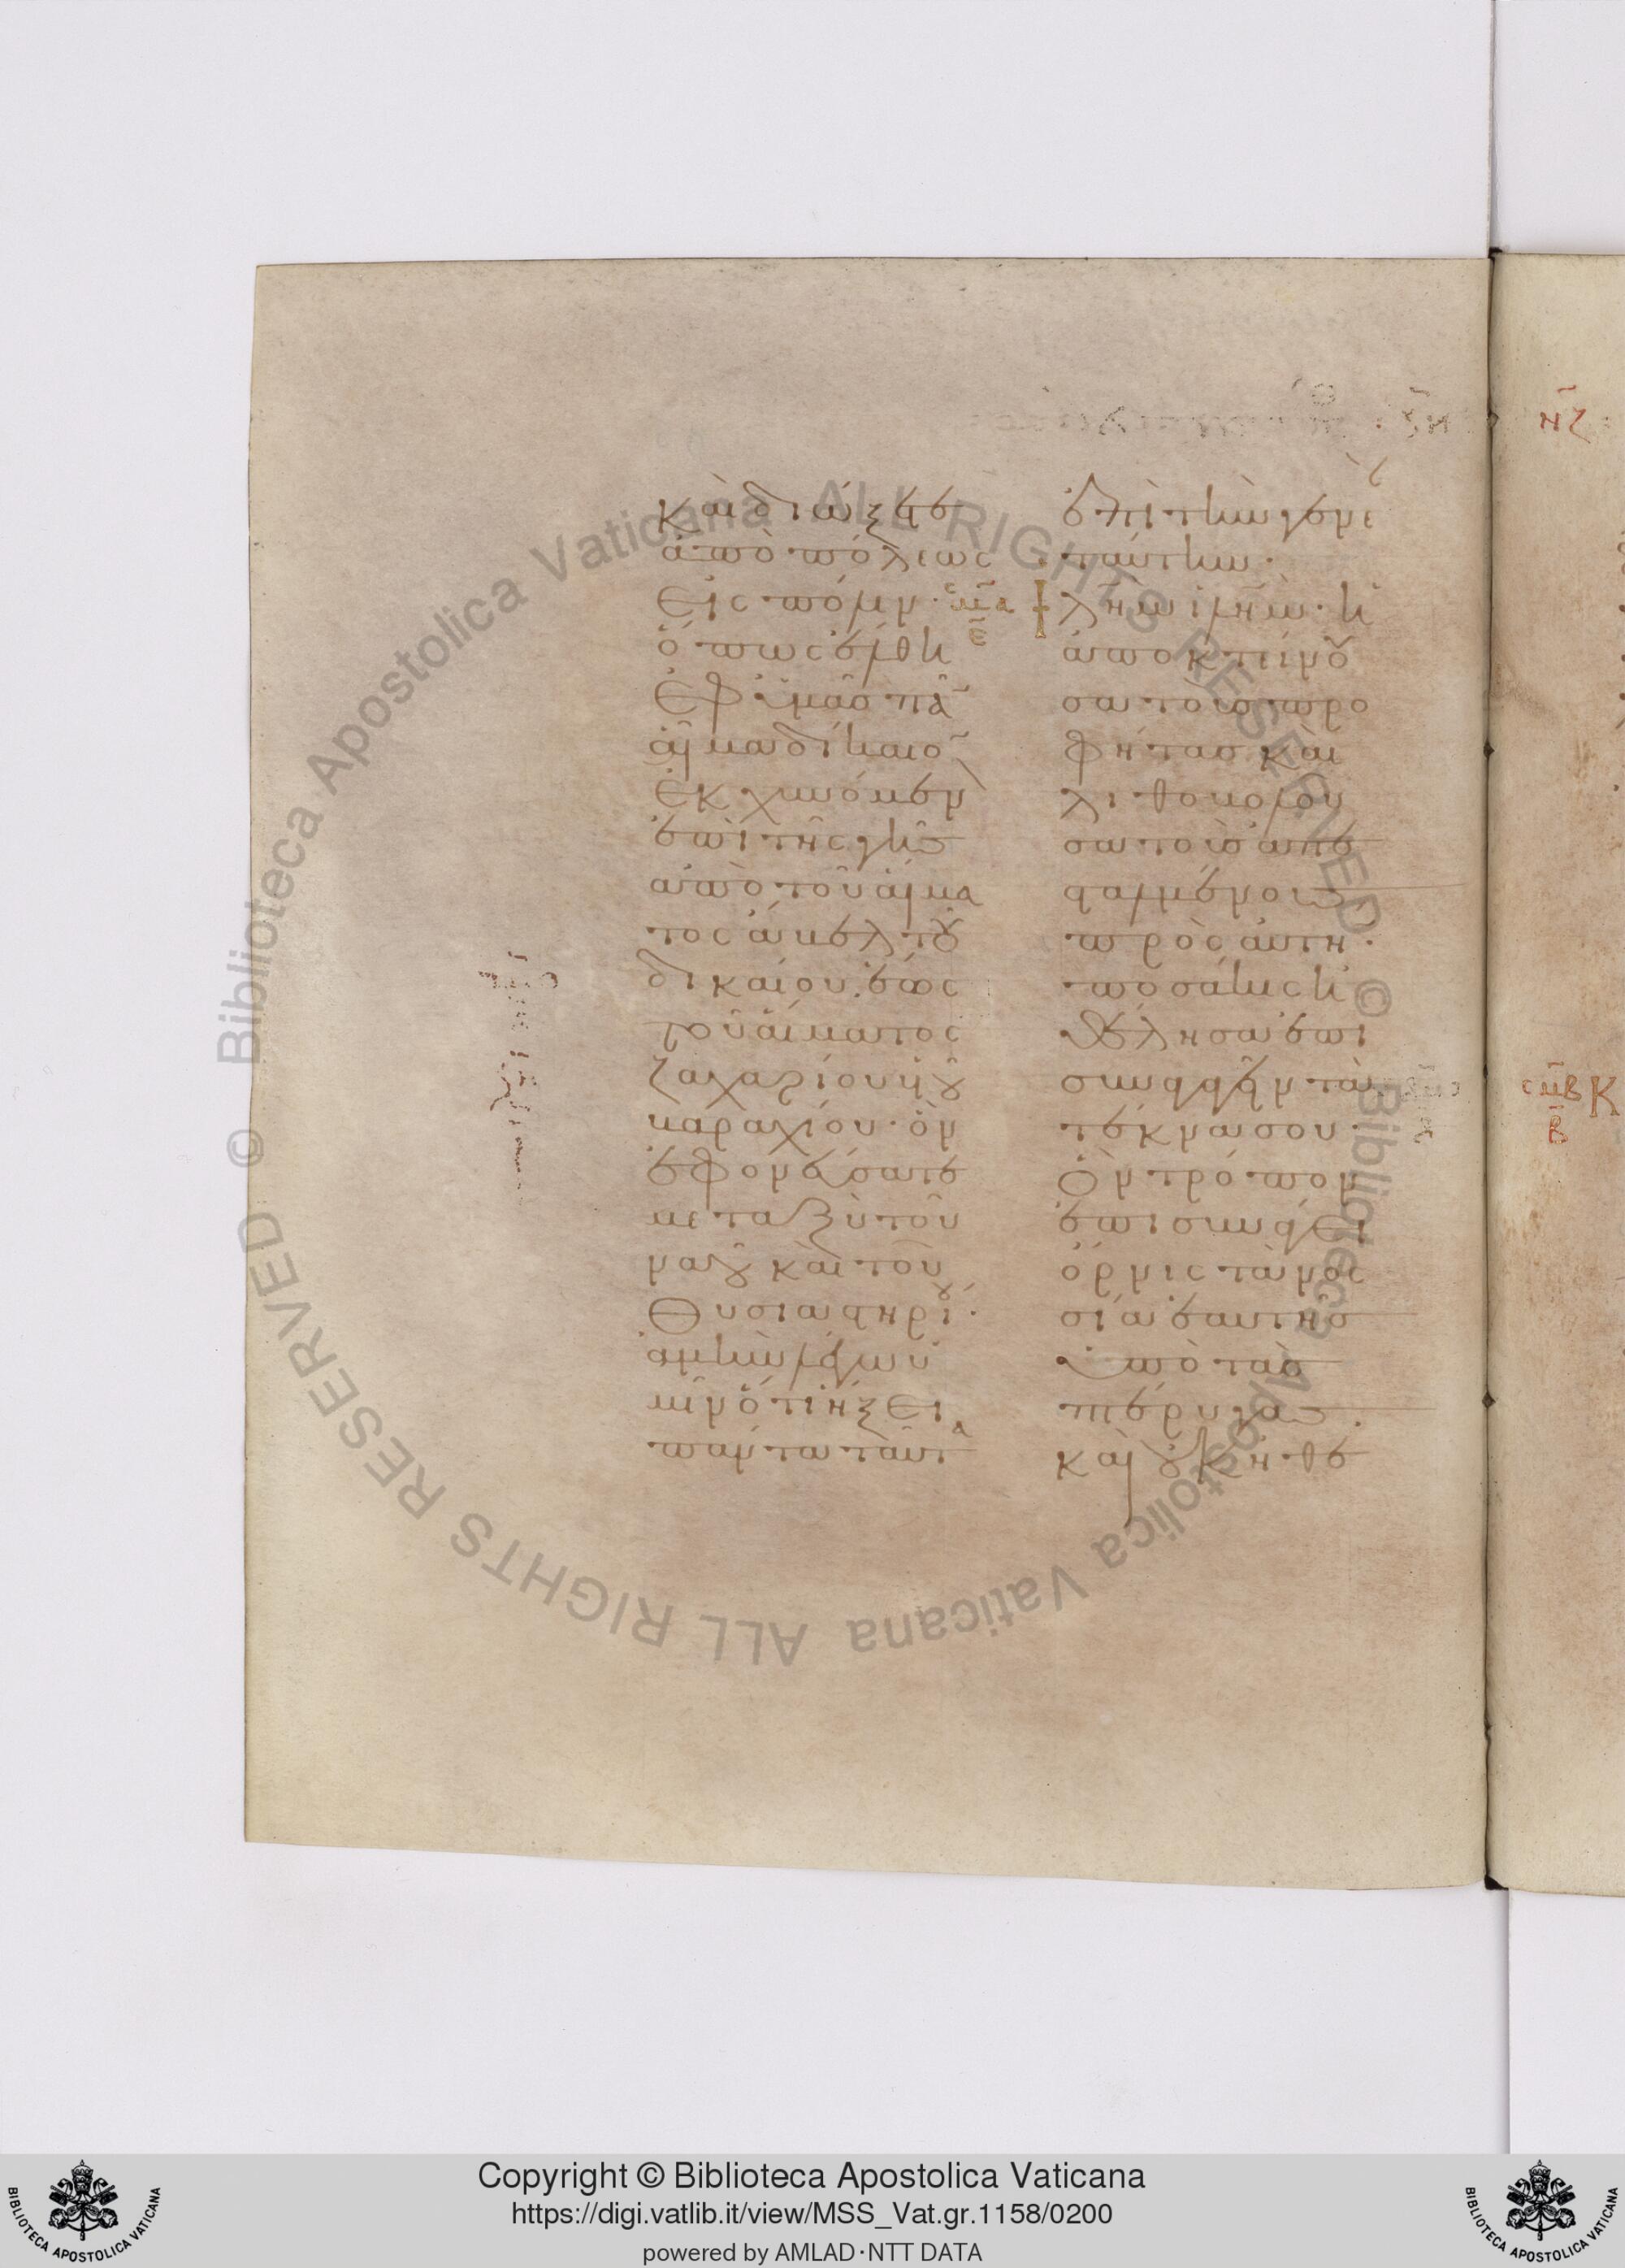 καὶ διώξετε
ἀπὸ πόλεως
εἰς πόλιν·
σμα
ε
ὅπως ἔλθη
ἐφ' ὑμᾶς πᾶ̄
αἷμα δίκαιο̄
ἐκχυνόμεν̄
ἐπὶ τῆς γῆς
ἀπὸ τοῦ αἵμα
τος ἄβελ τοῦ
δικαίου. ἕως
τοῦ αἵματος
ζαχαρίου υἱοῦ
βαραχίου· ὃν
ἐφονεύσατε
μεταξὺ τοῦ
ναοῦ καὶ τοῦ
θυσιαστηρίου·
ἀμὴν λέγω ὑ
μῖν ὅτι ἥξει
πάντα ταῦτα
ἐπὶ τὴν γενε
ὰν ταύτην·
ἱλημ ἱλημ· ἡ
ἀποκτείνου
σα τοὺς προ
φήτας καὶ
λιθοβολοῦ
σα τοὺς ἀπε
σταλμένους
πρὸς αὐτὴν·
ποσάκις ἠ
θέλησα ἐπι
συναγαγεῖν τὰ
τέκνα σου·
ὃν τρόπον
ἐπισυνάγει
ὄρνις τὰ νοσ
σία ἑαυτῆς
ὑπὸ τὰς
πτέρυγας.
καὶ οὐκ ἠθε
νζ
σμβ
β
Κ
© Biblioteca Apostolica Vaticana ALL RIGHTS RESERVED © Biblioteca Apostolica Vaticana ALL RIGHTS RESERVED
Copyright © Biblioteca Apostolica Vaticana
https://digi.vatlib.it/view/MSS_Vat.gr.1158/0200
powered by AMLAD·NTT DATA
BIBLIOTECA APOSTOLICA VATICANA
BIBLIOTECA APOSTOLICA VATICANA